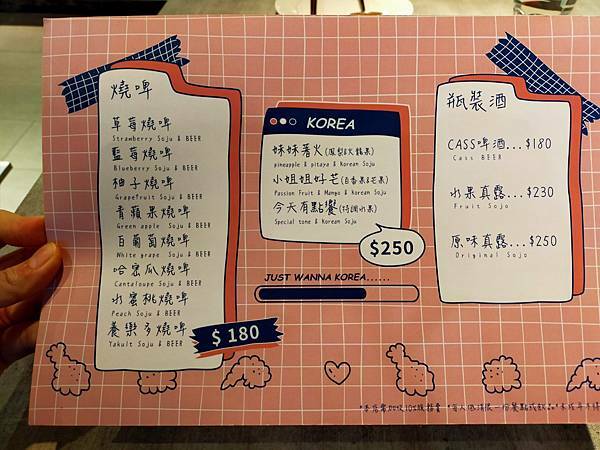 燒啤
草莓燒啤
Strawberry Soju & BEER
藍莓燒啤
Blueberry Soju & BEER
柚子燒啤
Grapefruit Soju & BEER
青蘋果燒啤
Green apple Soju & BEER
白葡萄燒啤
White grape Soju & BEER
哈密瓜燒啤
Cantaloupe Soju & BEER
水蜜桃燒啤
Peach Soju & BEER
養樂多燒啤
Yakult Soju & BEER
$ 180
KOREA
妹妹著火(鳳梨&火龍果)
pineapple & pitaya & Korean Soju
小姐姐好芒(百香果&芒果)
Passion Fruit & Mango & Korean Soju
今天有點饗(特調水果)
Special tone & Korean Soju
$250
JUST WANNA KOREA......
瓶裝酒
CASS啤酒...$180
Cass BEER
水果真露...$230
Fruit Sojo
原味真露...$250
Original Sojo
*本店需加收10%服務費 *每人低消限一份餐點或飲品